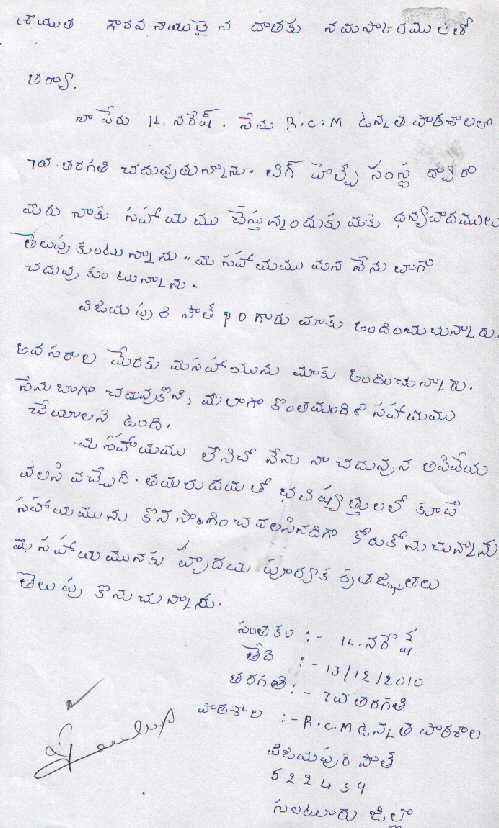 గౌరవనీయులైన దాతకు నమస్కారములతో
ఆర్యా,
నా పేరు K. నరేష్. నేను R.C.M ఉన్నత పాఠశాలలో
7వ తరగతి చదువుతున్నాను. బిగ్ హెల్ప్ సంస్థ ద్వారా
మీరు నాకు సహాయము చేస్తున్నందుకు మీకు ధన్యవాదములు
తెలుపుకుంటున్నాను. మీ సహాయము వలన నేను బాగా
చదువుకుంటున్నాను.
విజయపురి సౌత్ P.O గారు మాకు అందించుచున్నారు.
అవసరాల మేరకు మీ సహాయను మాకు అందించుచున్నారు.
నేను బాగా చదువుకొని, మీలాగా కొంతమందికి సహాయము
చేయాలని ఉంది.
మీ సహాయము లేనిచో నేను నా చదువును ఆపివేయ
వలసి వచ్చేది. తమరు దయతో భవిష్యత్తులలో కూడా
సహాయమును కొనసాగించవలసినదిగా కోరుకొనుచున్నాను
మీ సహాయమునకు హృదయ పూర్వక కృతజ్ఞతలు
తెలుపుకొనుచున్నాను.
సంతకం :- K. నరేష్
తేది :- 13/12/2010
తరగతి :- 7వ తరగతి
పాఠశాల :- R.C.M ఉన్నత పాఠశాల
విజయపురి సౌత్
522439
గుంటూరు జిల్లా